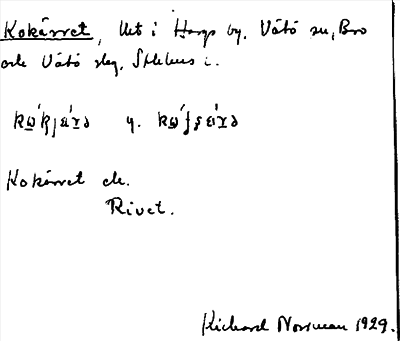 Kokärret, Ut i Harg by. Vätö sn, Bro
och Vätö slg. Sthlms l.
kώ̲kʃä́r̲ə y. kώ̲ʃʂä́r̲ə
Kokärret el.
Rivet.
Richard Norrman 1929.